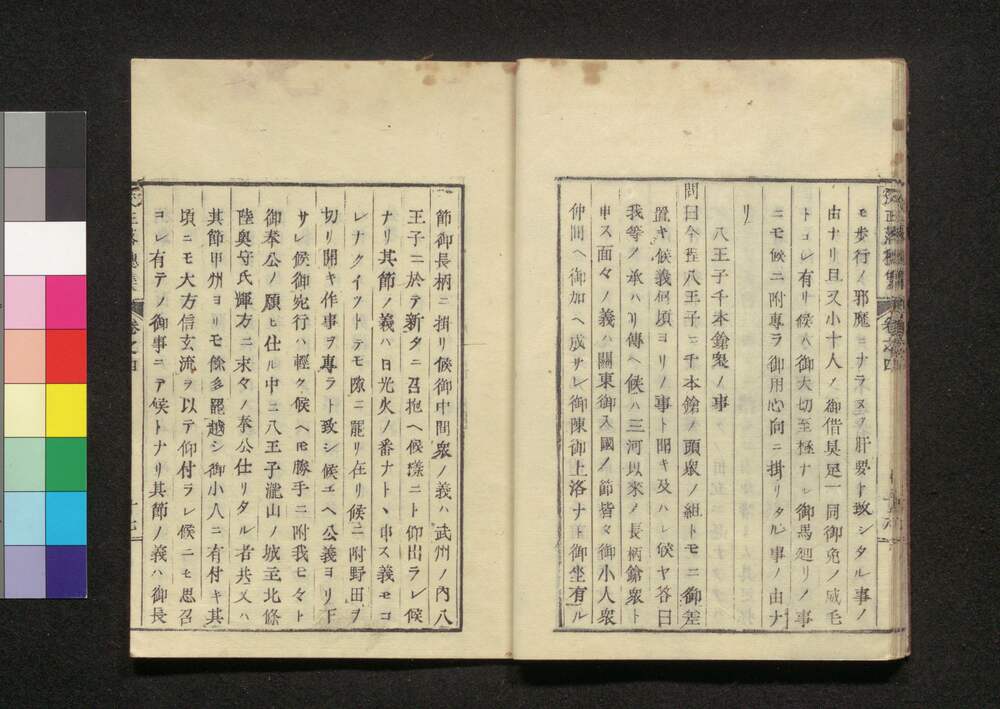 モ歩行ノ邪魔ニナラヌヲ肝要ト致シタル事ノ
由ナリ且又小十人ノ御借具足一同御免ノ威毛
トコレ有リ候ハ御大切至極ナレ御馬廻リノ事
ニモ候ニ附專ラ御用心向ニ掛リタル事ノ由ナ
リ
八王子千本鎗衆ノ事
問曰今程八王子ニ千本鎗ノ頭衆ノ組トモニ御差
置キ候義何頃ヨリノ事ト聞キ及ハレ候ヤ答曰
我等ノ承ハリ傳ヘ候ハ三河以來ノ長柄鎗衆ト
申ス面々ノ義ハ關東御入國ノ節皆々御小人衆
仲間ヘ御加ヘ成サレ御陳御上洛ナト御坐有ル
節御長柄ニ掛リ候御中間衆ノ義ハ武州ノ内八
王子ニ於テ新タニ召抱ヘ候樣ニト仰出ラレ候
ナリ其節ノ義ハ日光火ノ番ナトヽ申ス義モコ
レナクイツトテモ隙ニ罷リ在リ候ニ附野田ヲ
切リ開キ作事ヲ專ラト致シ候エヘ公義ヨリ下
サレ候御宛行ハ輕ク候ヘモ勝手ニ附我モ々ト
御奉公ノ願ヒ仕ル中ニ八王子瀧山ノ城主北條
陸奥守氏輝方ニ末々ノ奉公仕リタル者共又ハ
其節甲州ヨリモ餘多罷越シ御小人ニ有付キ其
頃ニモ大方信玄流ヲ以テ仰付ラレ候ニモ思召
ヨレ有テノ御事ニテ候トナリ其節ノ義ハ御長
卷之四